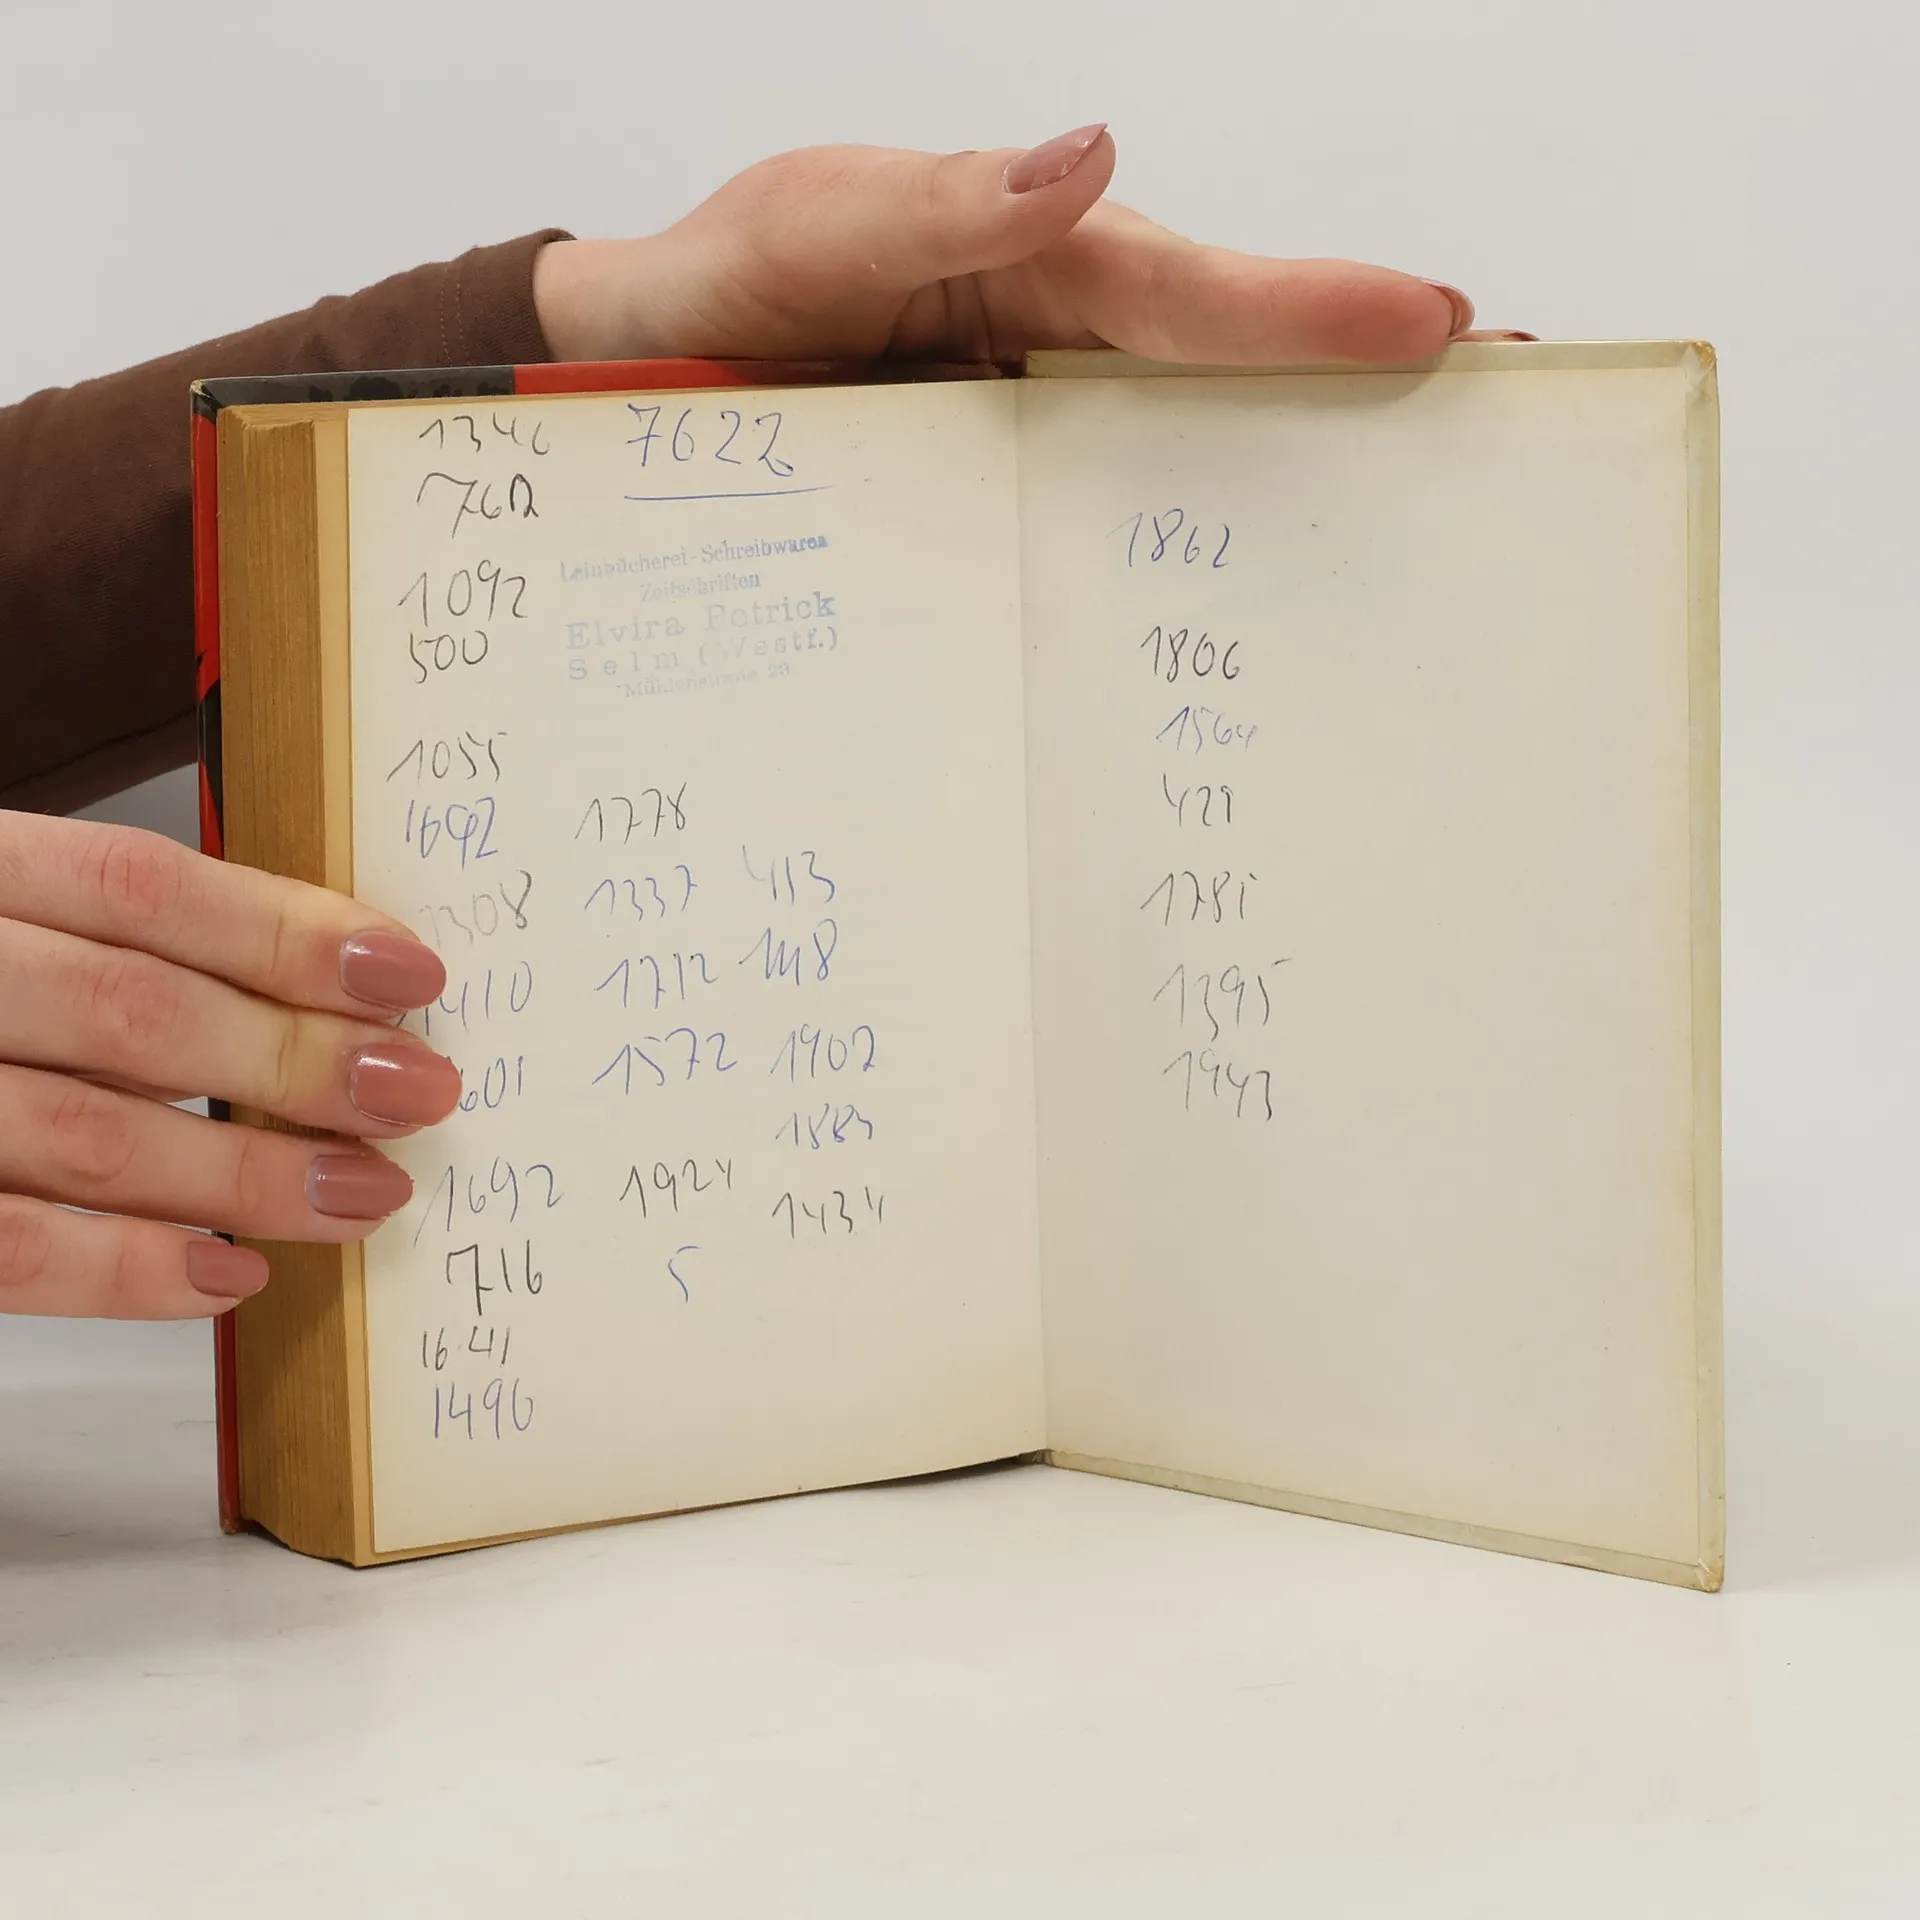 1346 7622
762
Leihbücherei-Schreibwaren
Zeitschriften
Elvira Petrick
Selm (Westf.)
Mühlenstraße 23
1092
500
1055
1692 1778
1308 1337 413
1410 1712 1418
601 1572 1902
1883
1692 1924 1434
716 5
1641
1496
1862
1806
1564
429
1781
1395
1943